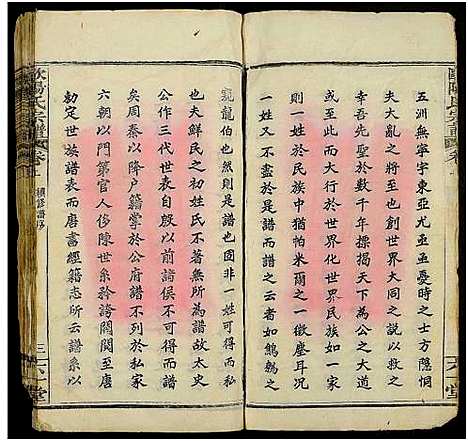 五洲無寧宇東亞尤亟亟憂時之士方隱惻
夫大亂之將至也創世界大同之說以救之
幸吾先聖於數千年標揭天下為公之大道
一以貫之進而至於世界化世界民族如一家
之說於民族中猶帕米爾之一微塵耳況
不盡於是譜而譜之云者如鷦鷯之
窺龍伯也然則是譜也固非一姓可得而私
也夫鮮民之初姓氏不著無所為譜故太史
公作三代世表自殷以前諸侯不可得而譜
矣周秦以降户籍掌於公府譜不列於私家
六朝以門第官人侈陳世系矜誇閥閱至唐
勅定世族譜表而唐書經籍志所云譜系
歐陽氏宗譜
卷首
續修譜序
三
六一堂